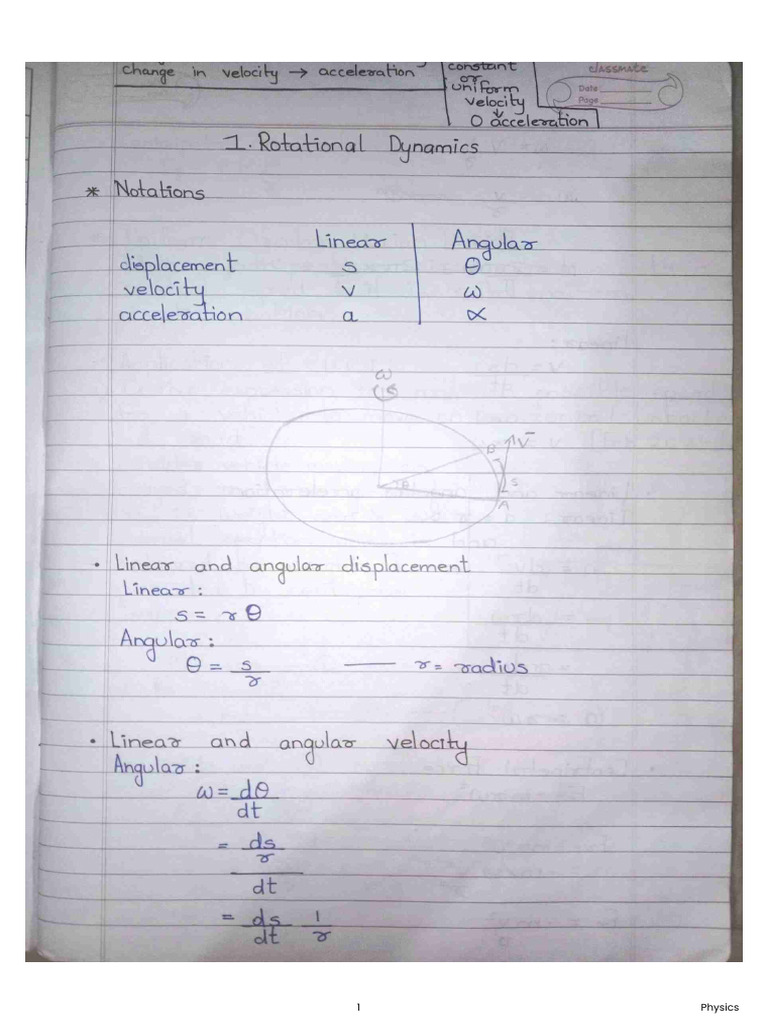 change in velocity → acceleration
constant
or
uniform
velocity
↓
0 acceleration
classmate
Date
Page
1. Rotational Dynamics
* Notations
Linear | Angular
displacement s | θ
velocity v | ω
acceleration a | α
ω
B
v̄
θ
s
A
• Linear and angular displacement
Linear :
s = rθ
Angular :
θ = s/r —— r = radius
• Linear and angular velocity
Angular :
ω = dθ/dt
= ds/r
dt
= ds/dt 1/r
1
Physics